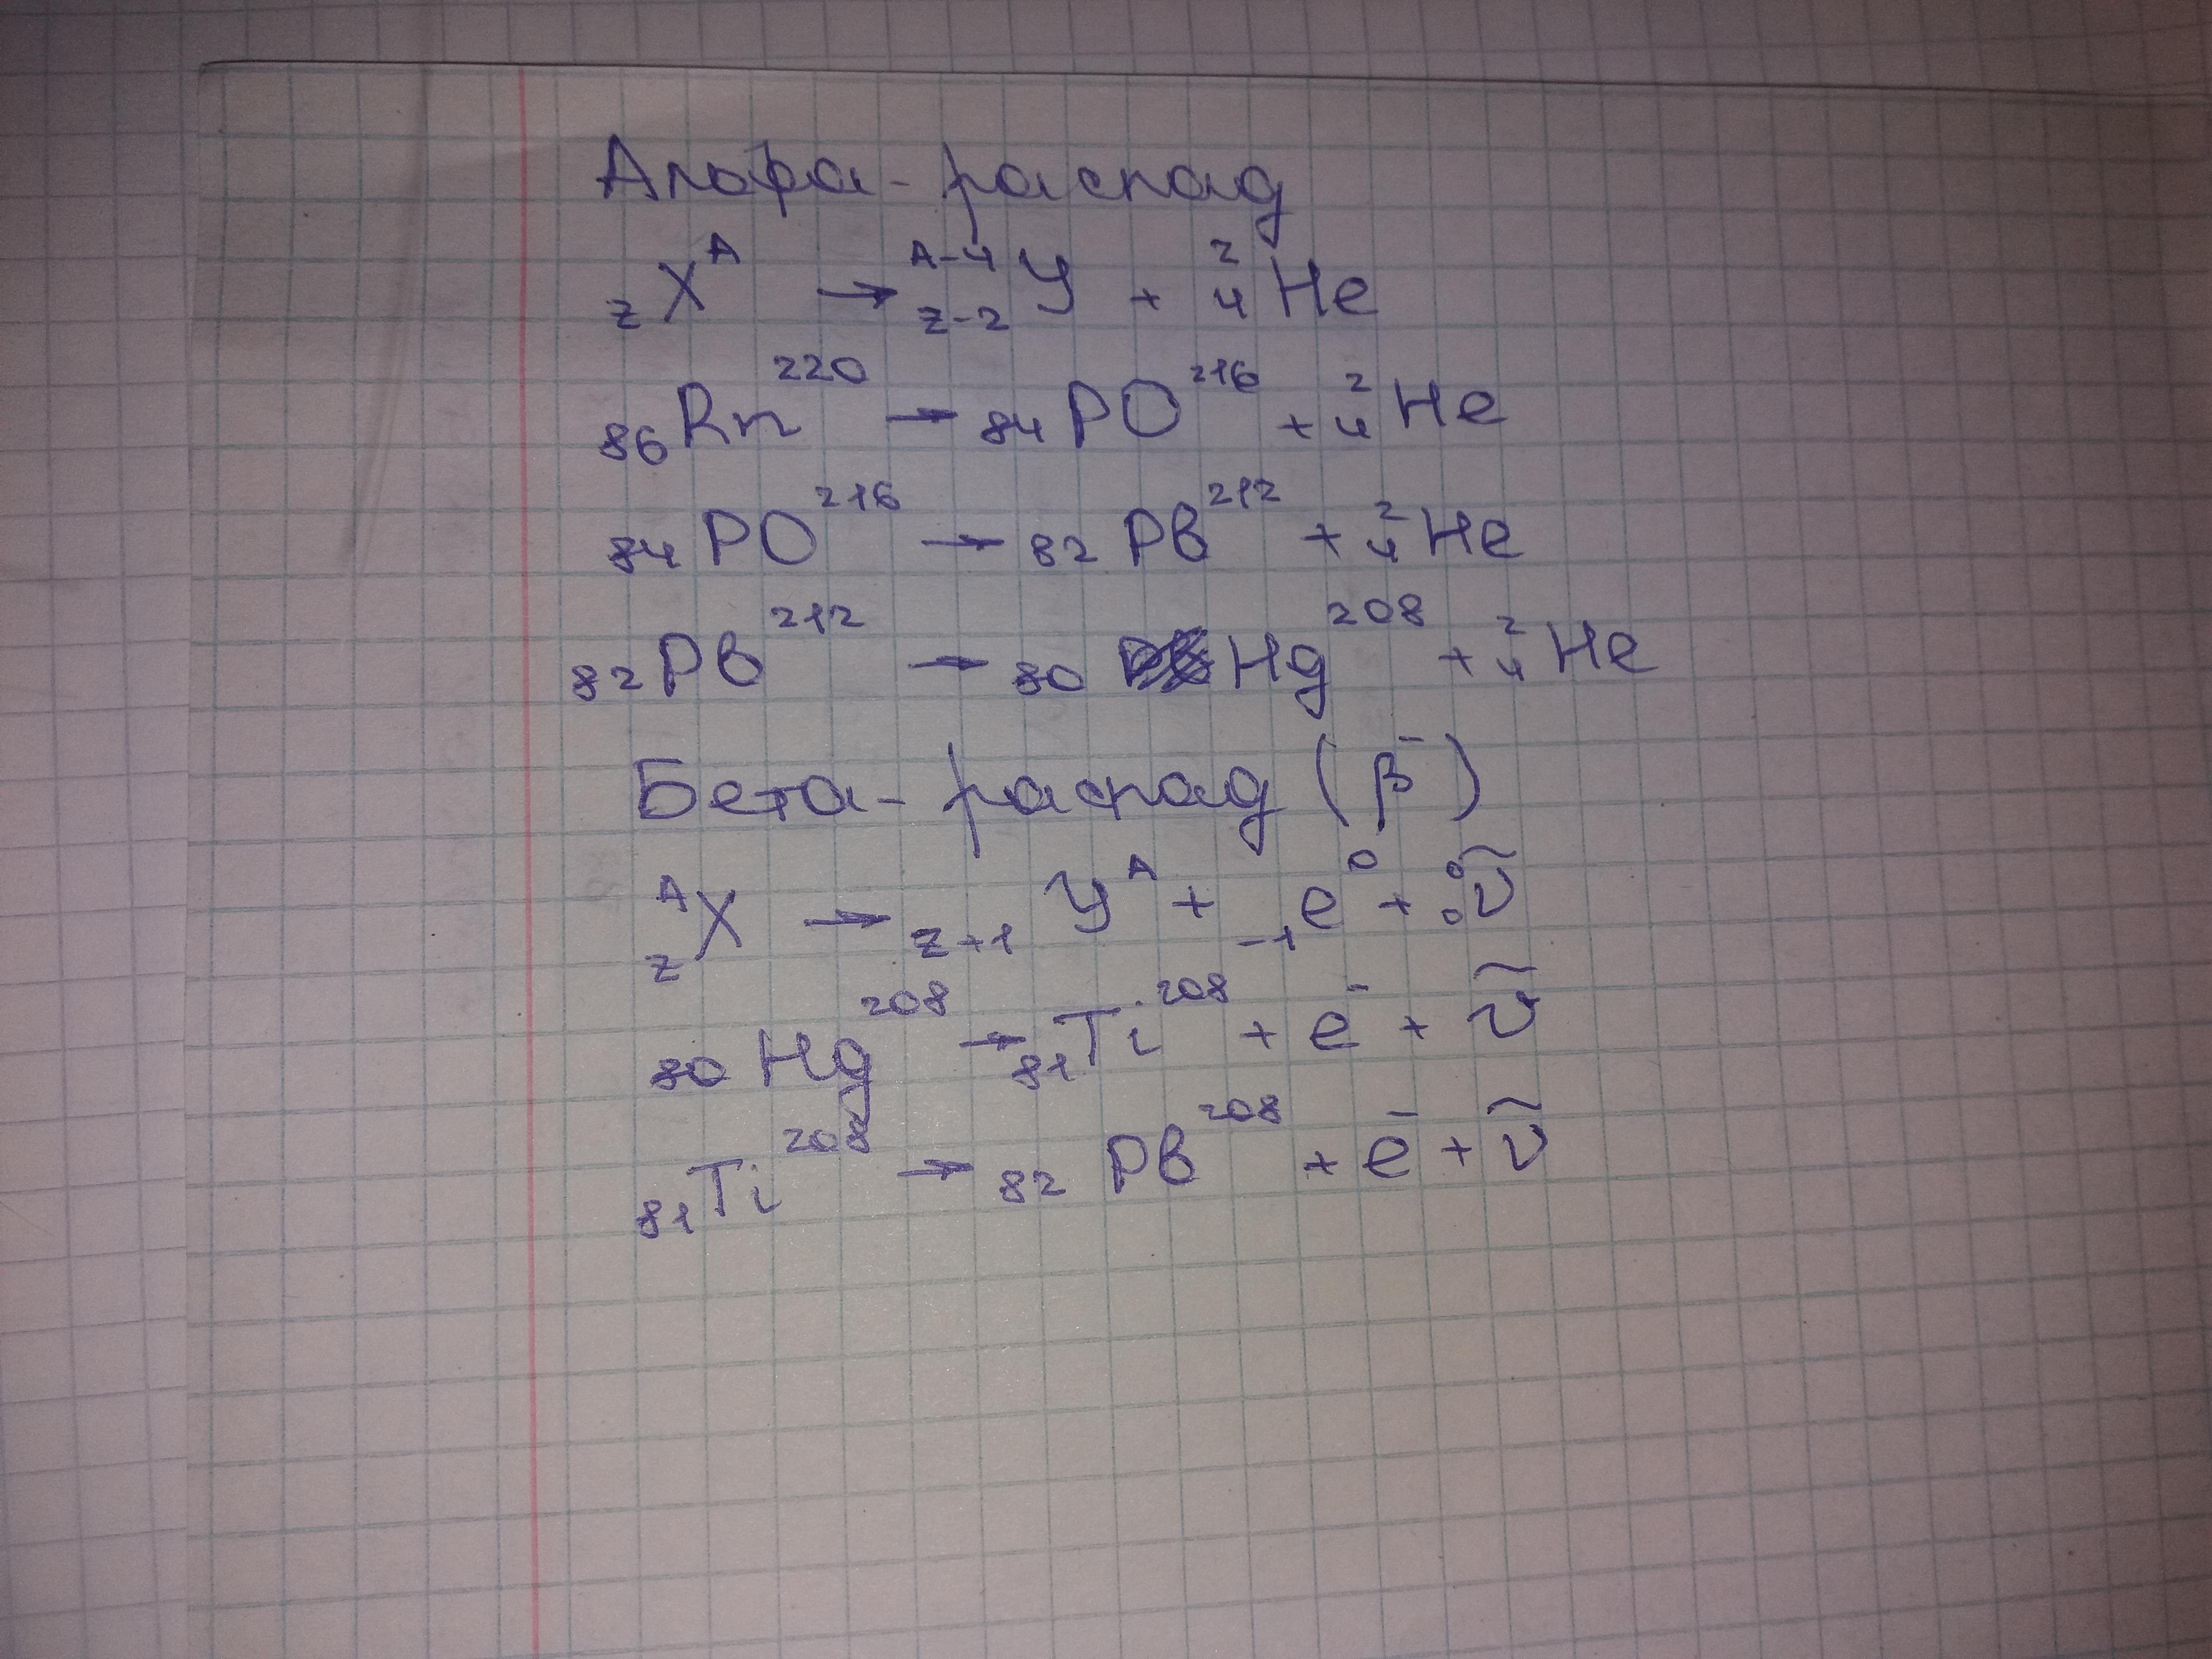 Альфа-распад
zXᴬ → ᴬ⁻⁴z-2У + ²₄He
₈₆Rn²²⁰ → ₈₄PO²¹⁶ + ²₄He
₈₄PO²¹⁶ → ₈₂Pb²¹² + ²₄He
₈₂Pb²¹² → ₈₀Hg²⁰⁸ + ²₄He
Бета-распад (β⁻)
ᴬzX → z+1Уᴬ + ₋₁e⁰ + ⁰₀ν̃
₈₀Hg²⁰⁸ → ₈₁Ti²⁰⁸ + e⁻ + ν̃
₈₁Ti²⁰⁸ → ₈₂Pb²⁰⁸ + e⁻ + ν̃